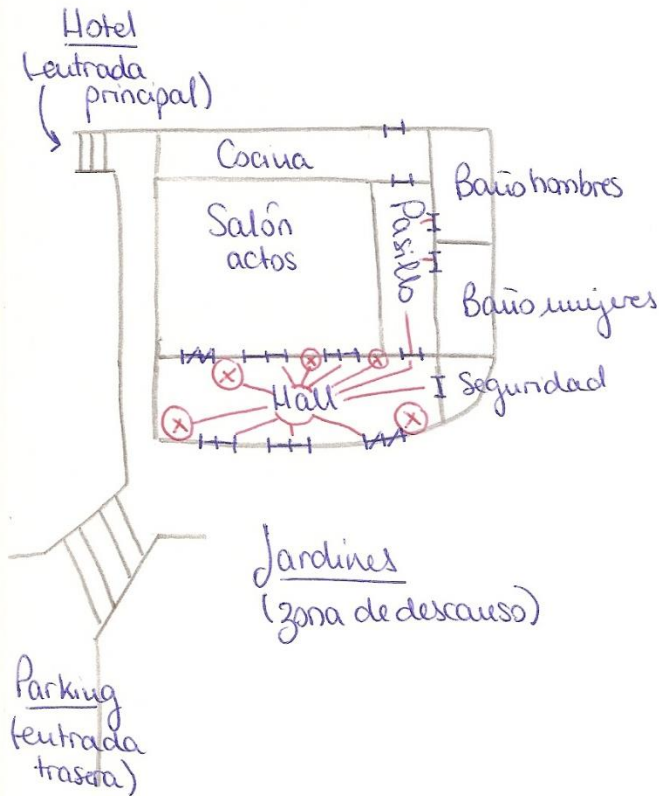 Hotel
(entrada
principal)
Cocina
Baño hombres
Salón
actos
Pasillo
Baño mujeres
Hall
Seguridad
Jardines
(zona de descanso)
Parking
(entrada
trasera)